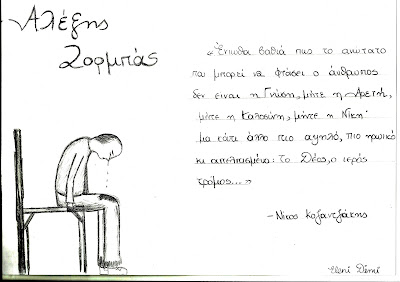 Αλέξης
Ζορμπάς
«Ένιωθα βαθιά πως το ανώτατο
που μπορεί να φτάσει ο άνθρωπος
δεν είναι η Γνώση, μήτε η Αρετή,
μήτε η Καλοσύνη, μήτε η Νίκη·
μα κάτι άλλο πιο αψηλό, πιο ηρωικό
κι απελπισμένο: Το Δέος, ο ιερός
τρόμος...»
-Νίκος Καζαντζάκης
Eleni Démi